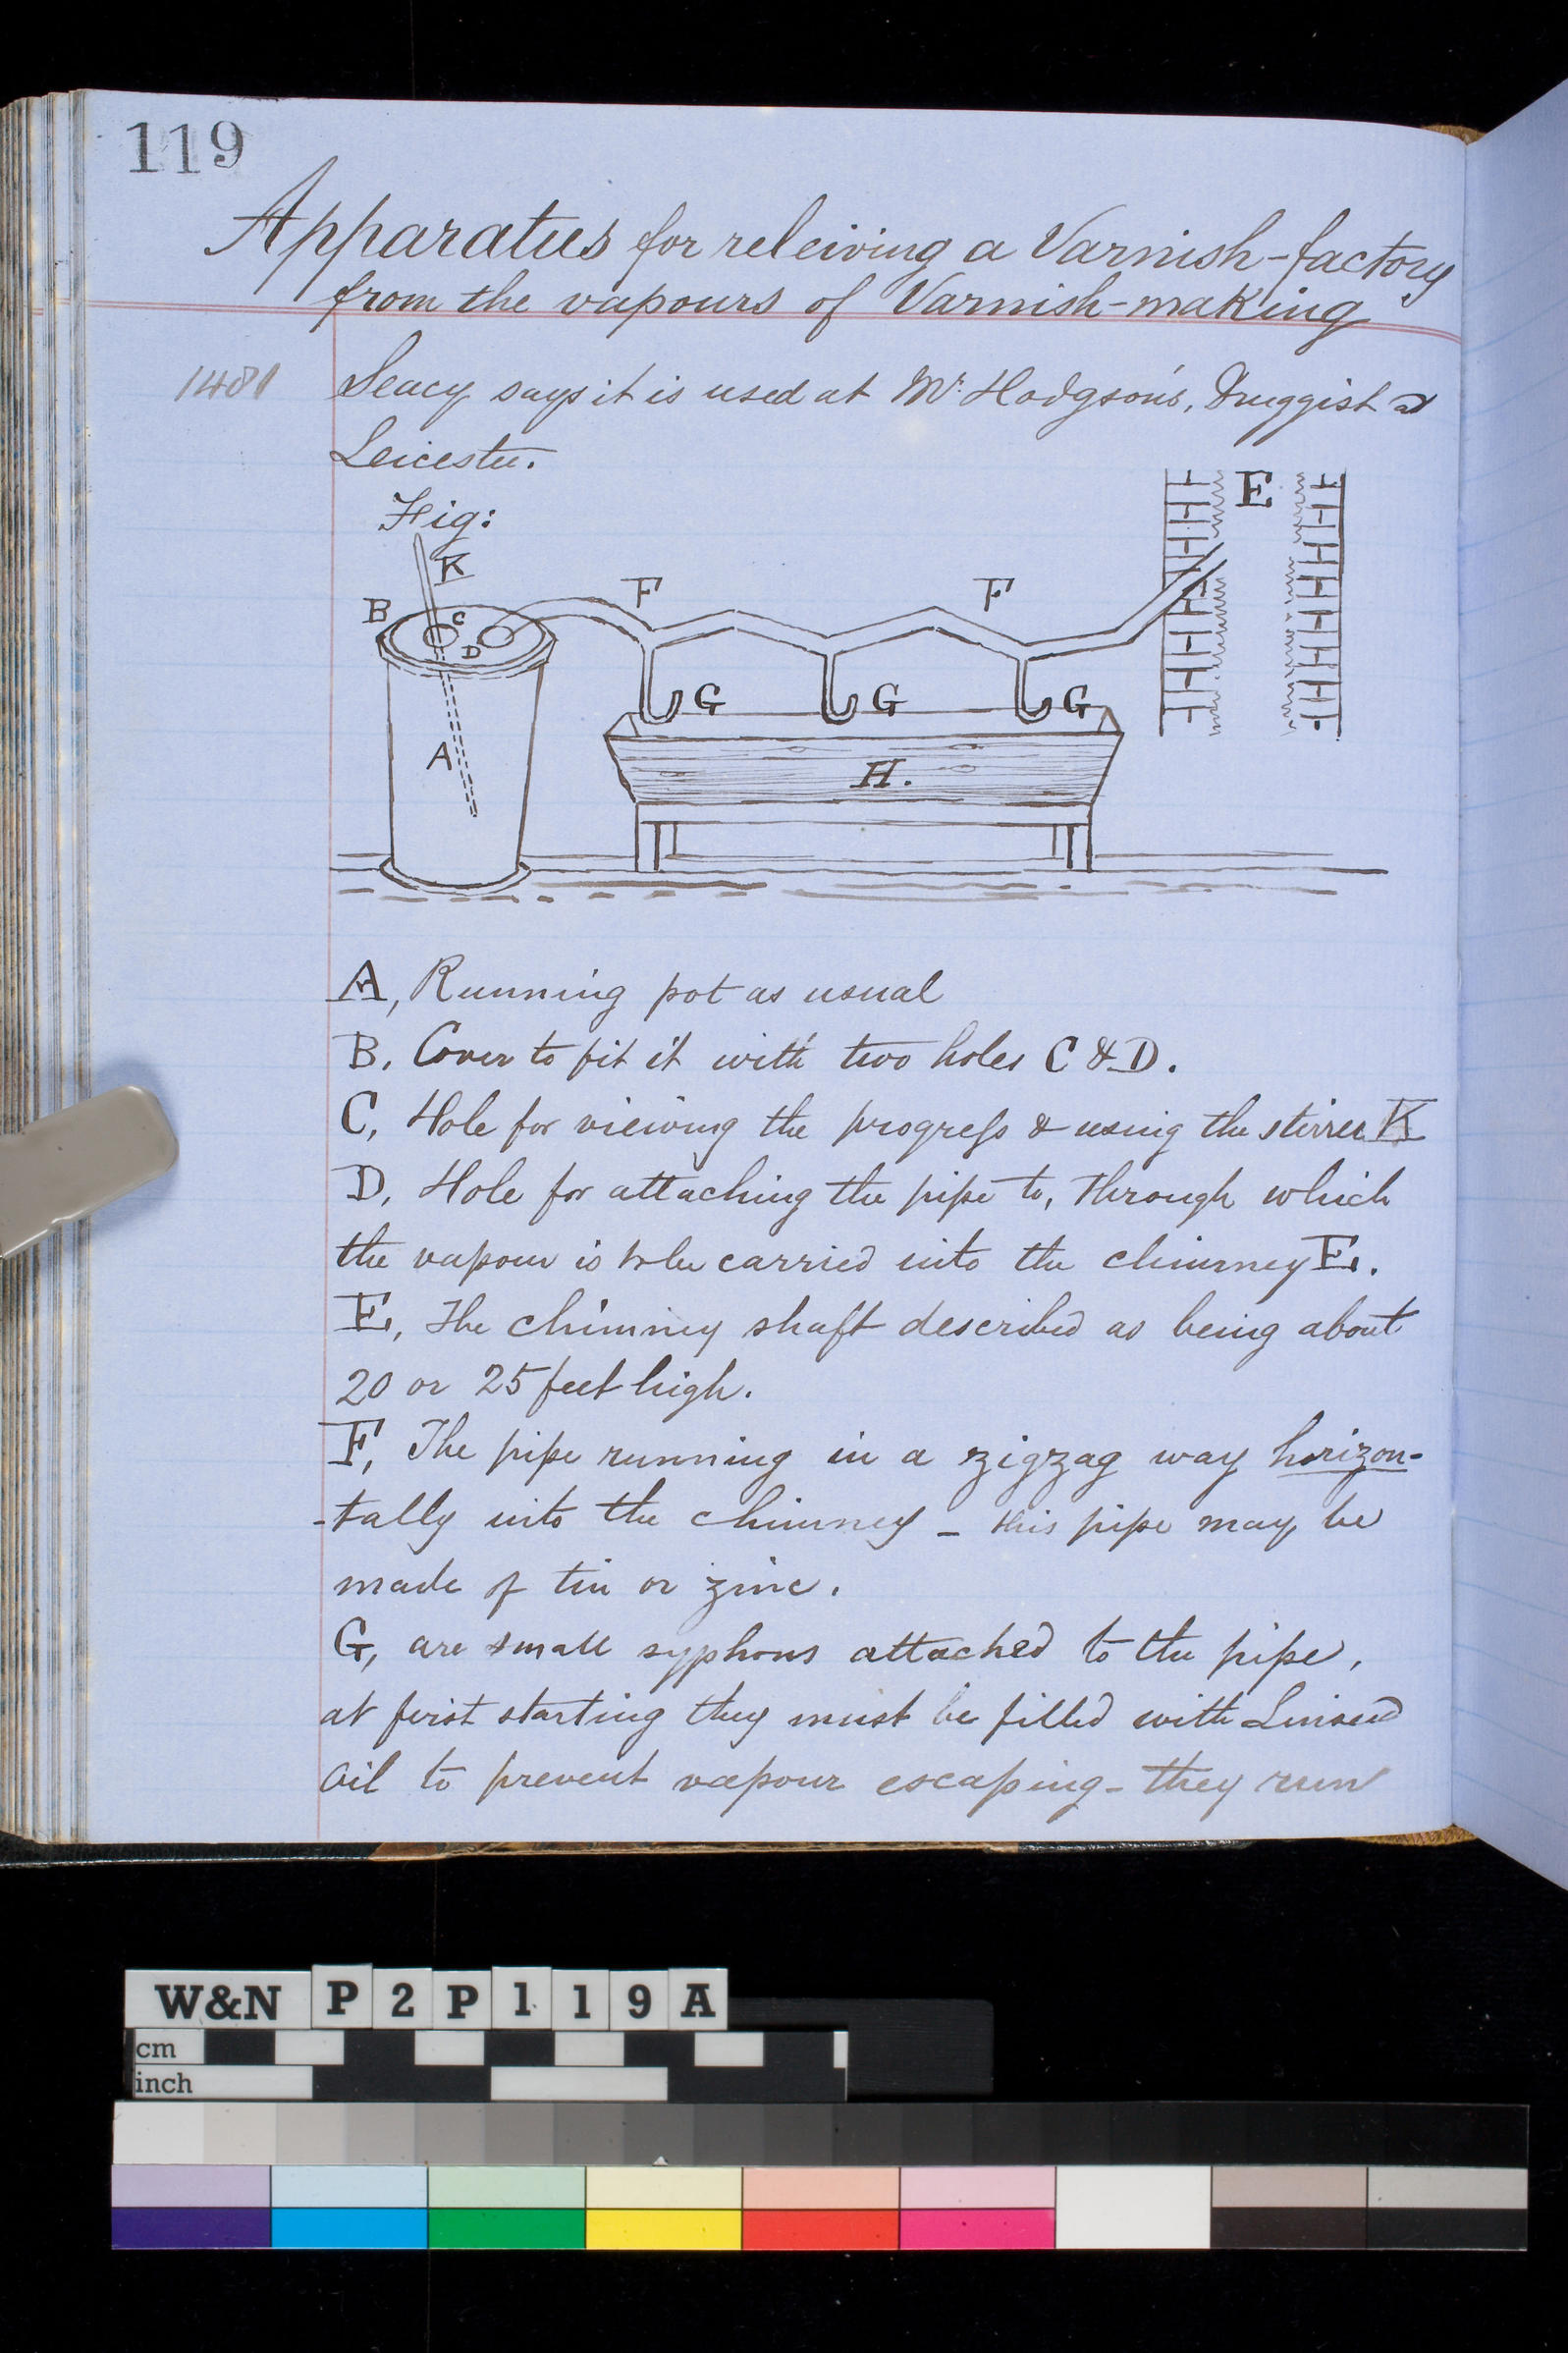 119
Apparatus for releiving a Varnish-factory
from the vapours of Varnish-making
1481
Seacy says it is used at Mr. Hodgson's, Druggist at
Leicester.
Fig:
E
K
F F
B C
D
G G G
A
H.
A, Running pot as usual
B, Cover to fit it with two holes C & D.
C, Hole for viewing the progress & using the stirrer K
D, Hole for attaching the pipe to, through which
the vapour is to be carried into the chimney E.
E, The chimney shaft described as being about
20 or 25 feet high.
F, The pipe running in a zigzag way horizon-
-tally into the chimney _ this pipe may be
made of tin or zinc.
G, are small syphons attached to the pipe,
at first starting they must be filled with Linseed
Oil to prevent vapour escaping - they run
W&N P2P119A
cm
inch